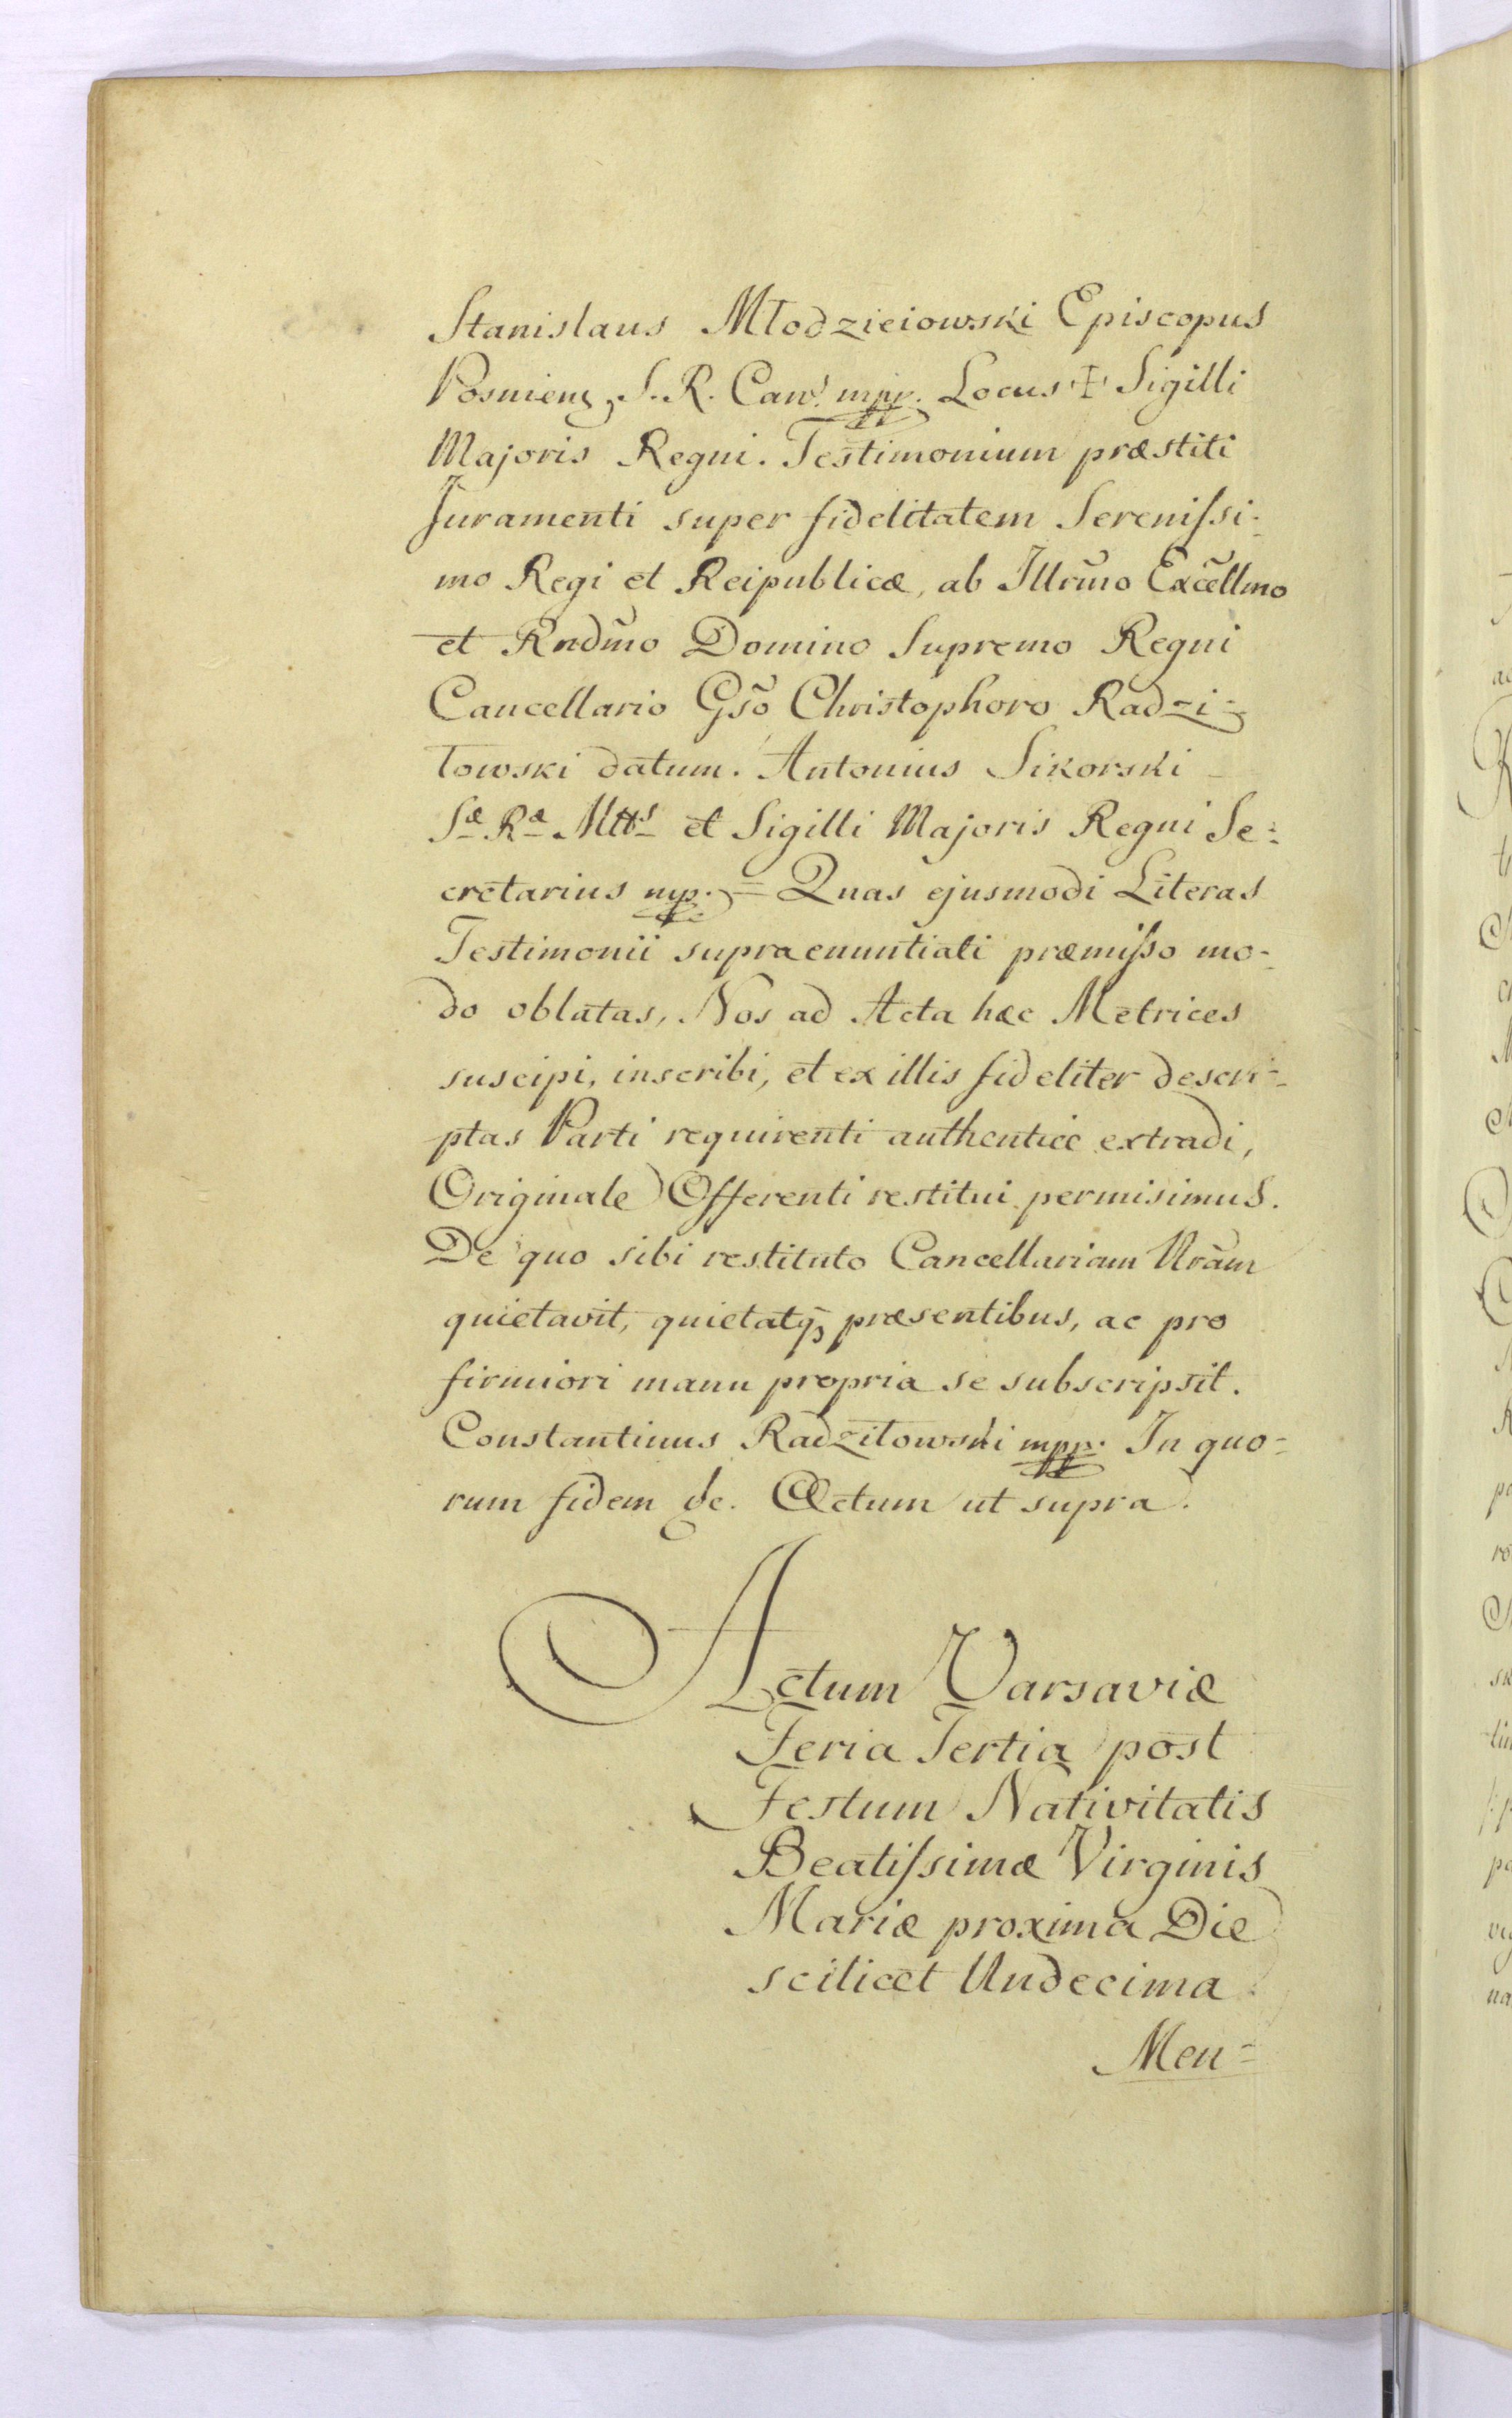 Stanislaus Młodzieiowski Episcopus
Posnienś, S. R. Canc͏ˢ mpp. Locus ‡ Sigilli
Majoris Regni. Testimonium præstiti
Juramenti super fidelitatem Sereniſsi-
mo Regi et Reipublicæ, ab Illrm̃o Excẽllmo
et Rndm̃o Domino Supremo Regni
Cancellario Gsõ Christophoro Radzi=
łowski datum. Antonius Sikorski
Sæ Ræ Mttˢ et Sigilli Majoris Regni Se=
cretarius mp. = Quas ejusmodi Literas
Testimonii supra enuntiati præmiſso mo-
do oblatas, Nos ad Acta hæc Metrices
suscipi, inscribi, et ex illis fideliter descri=
ptas Parti requirenti authentice extradi,
Originale Offerenti restitui permisimus.
De quo sibi restituto Cancellariam Nrãm
quietavit, quietatq̃ præsentibus, ac pro
firmiori manu propria se subscripsit.
Constantinus Radziłowski mpp. In quo=
rum fidem &c. Actum ut supra.
Actum Varsaviæ
Feria Tertia post
Festum Nativitatis
Beatiſsimæ Virginis
Mariæ proxima Die
scilicet Undecima
Men=